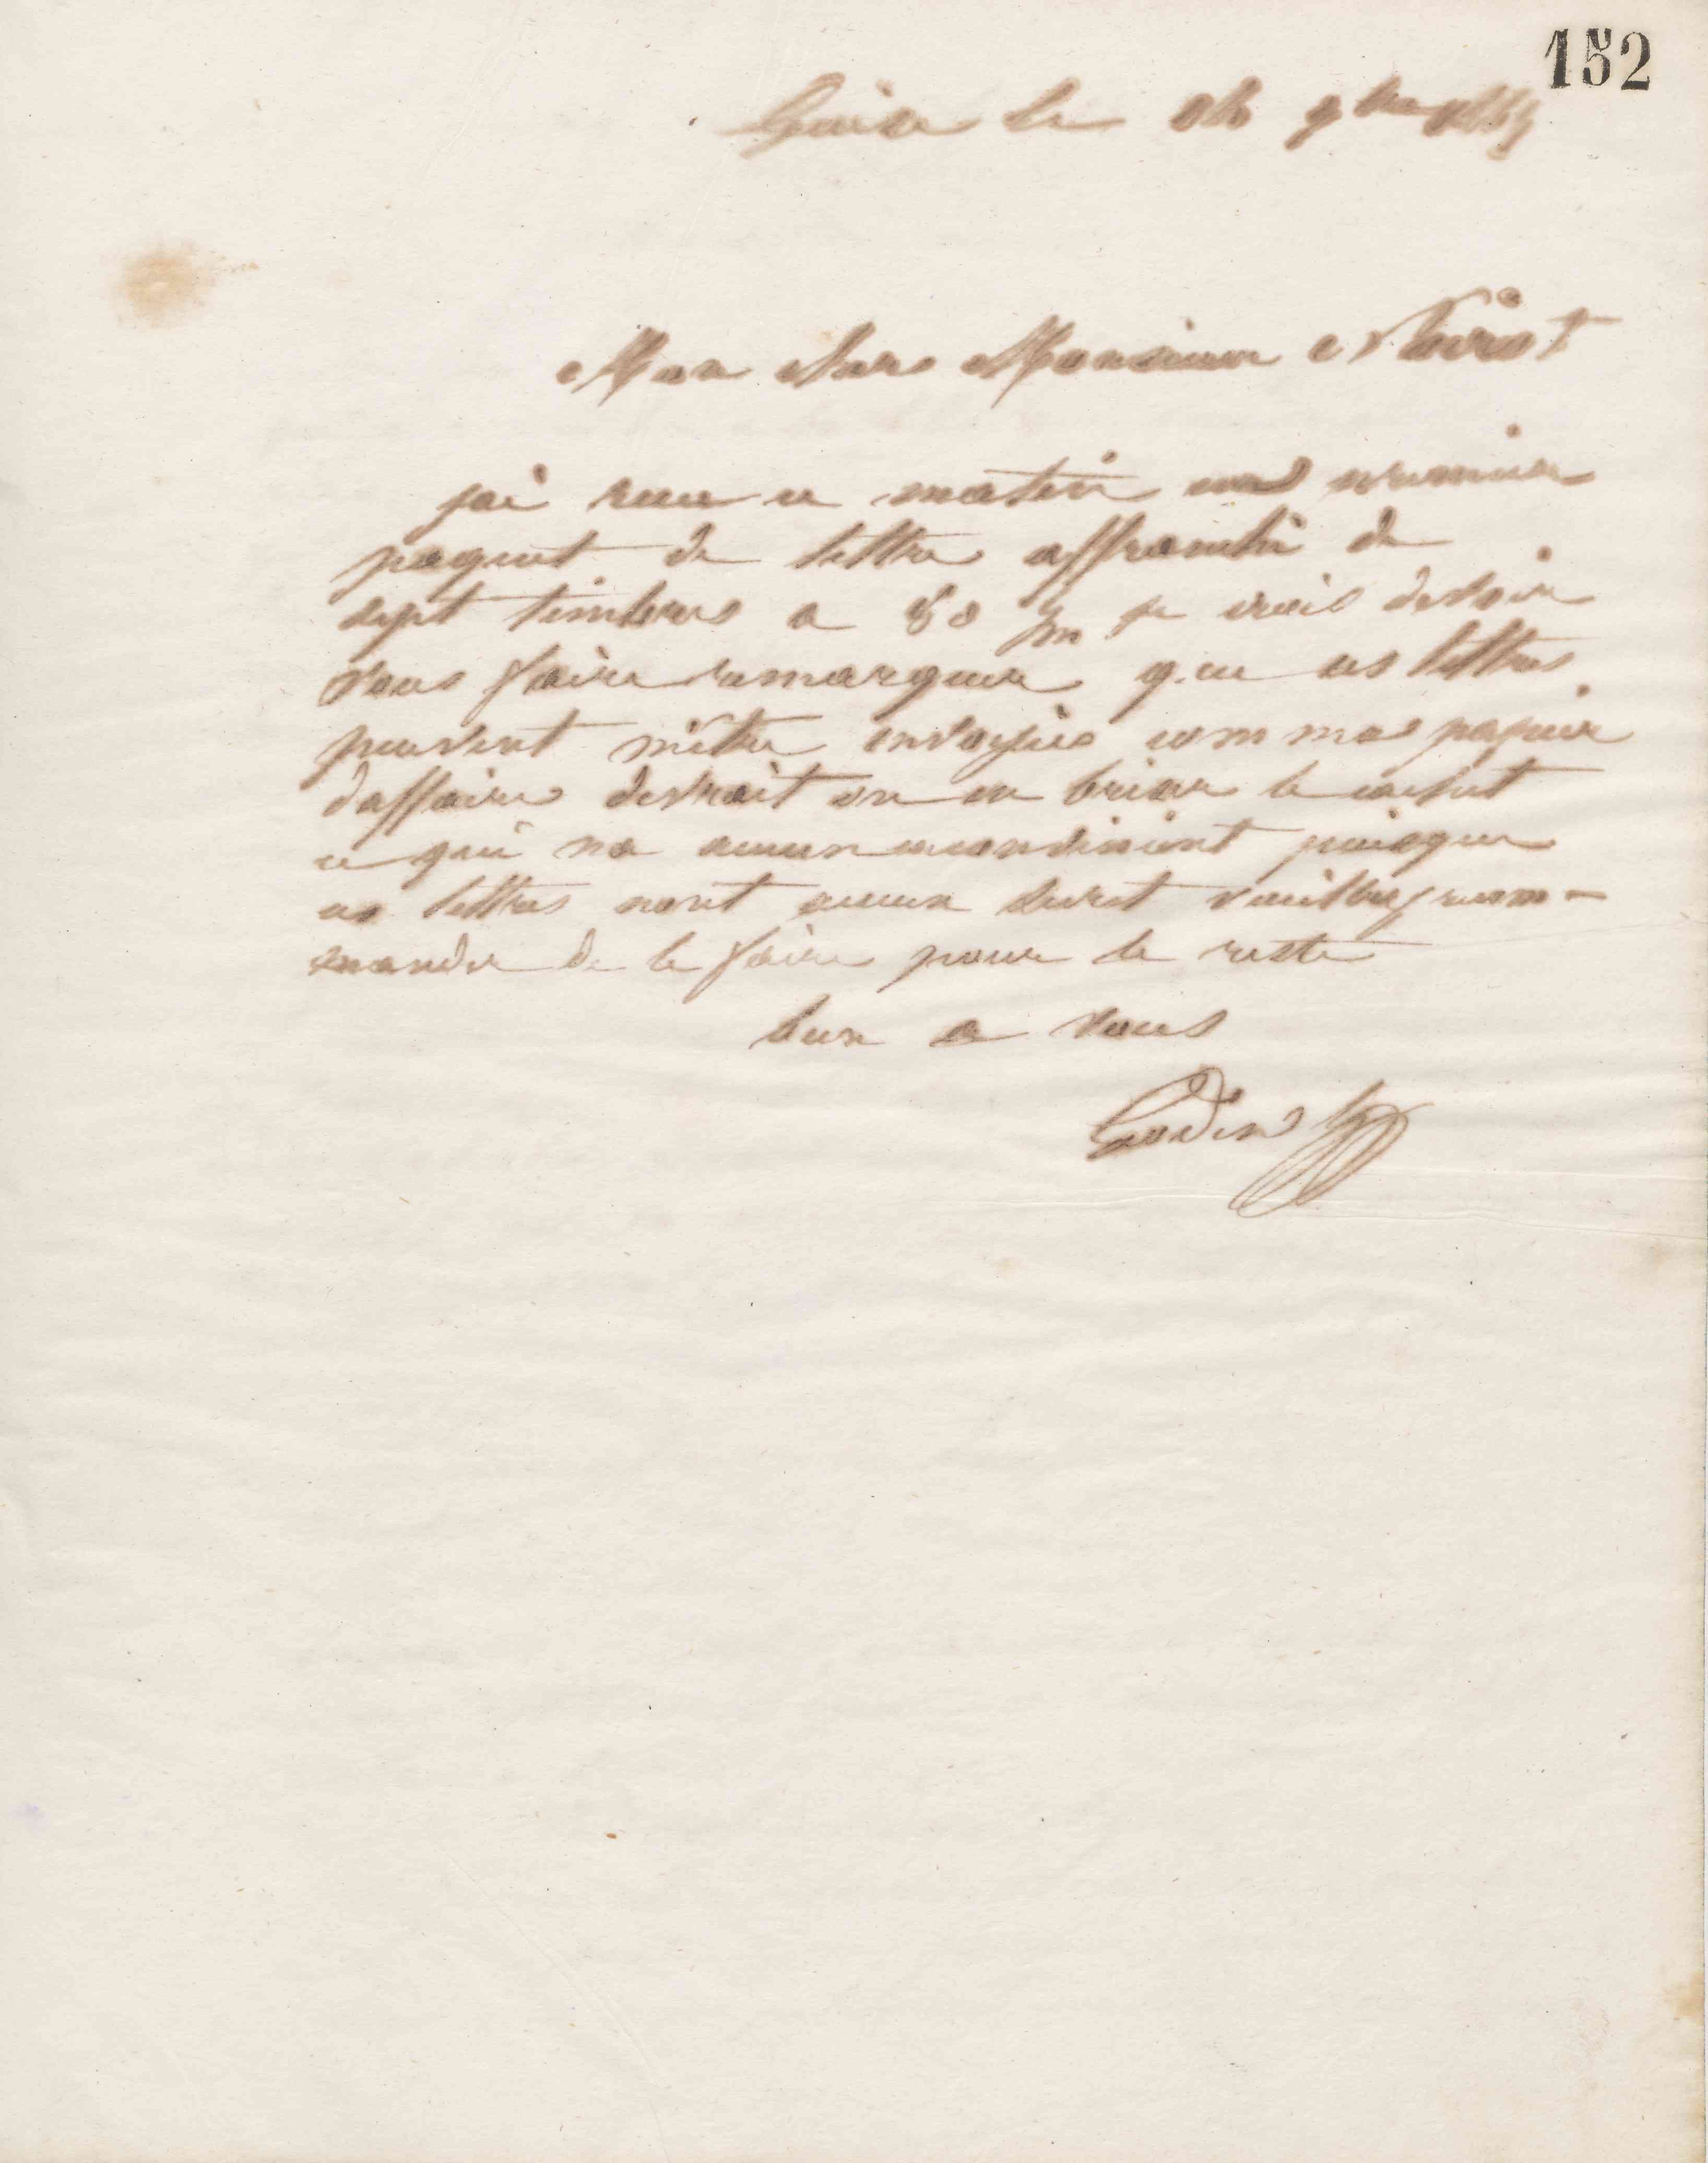 152
Guise le 9bre
Mon cher Monsieur Noirot
jai recu ce matin un premier
paquet de lettre affranchi de
sept timbres a 80 je crois devoir
vous faire remarquer que ces lettres
peuvent mêtre envoyées comme papier
daffaires devrait on en briser le cachet
ce qui na aucun inconvénient puisque
ces lettres nont aucun secret veuillez recom-
mander de le faire pour le reste
bien a vous
Godin